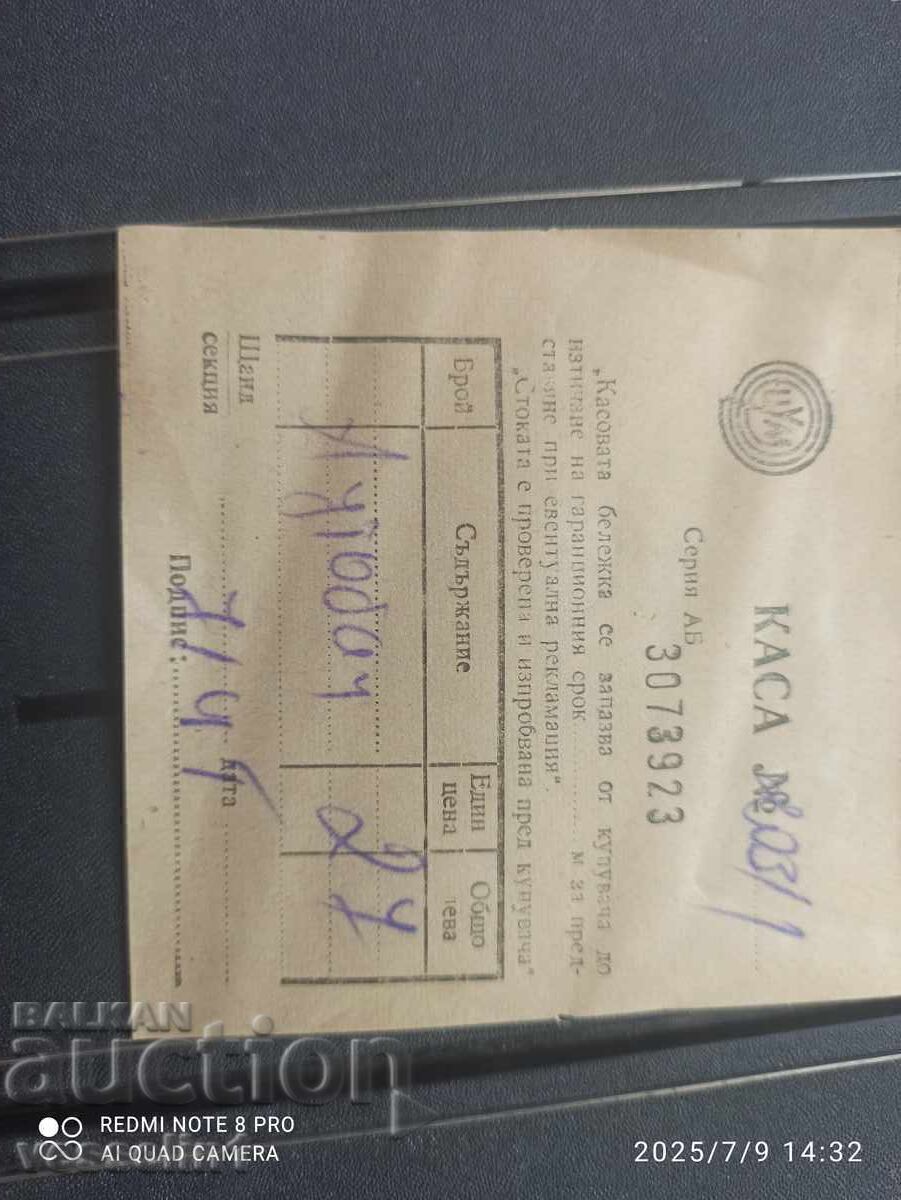 ЦУМ
КАСА №
Серия АБ
3073923
„Касовата бележка се запазва от купувача до
изтичане на гаранционния срок ......... м за пред-
ставяне при евентуална рекламация“.
„Стоката е проверена и изпробвана пред купувача“
Брой Съдържание Един цена Общо лева
Щанд
секция
дата
Подпис:
BALKAN
auction
veselin1
REDMI NOTE 8 PRO
AI QUAD CAMERA
2025/7/9 14:32